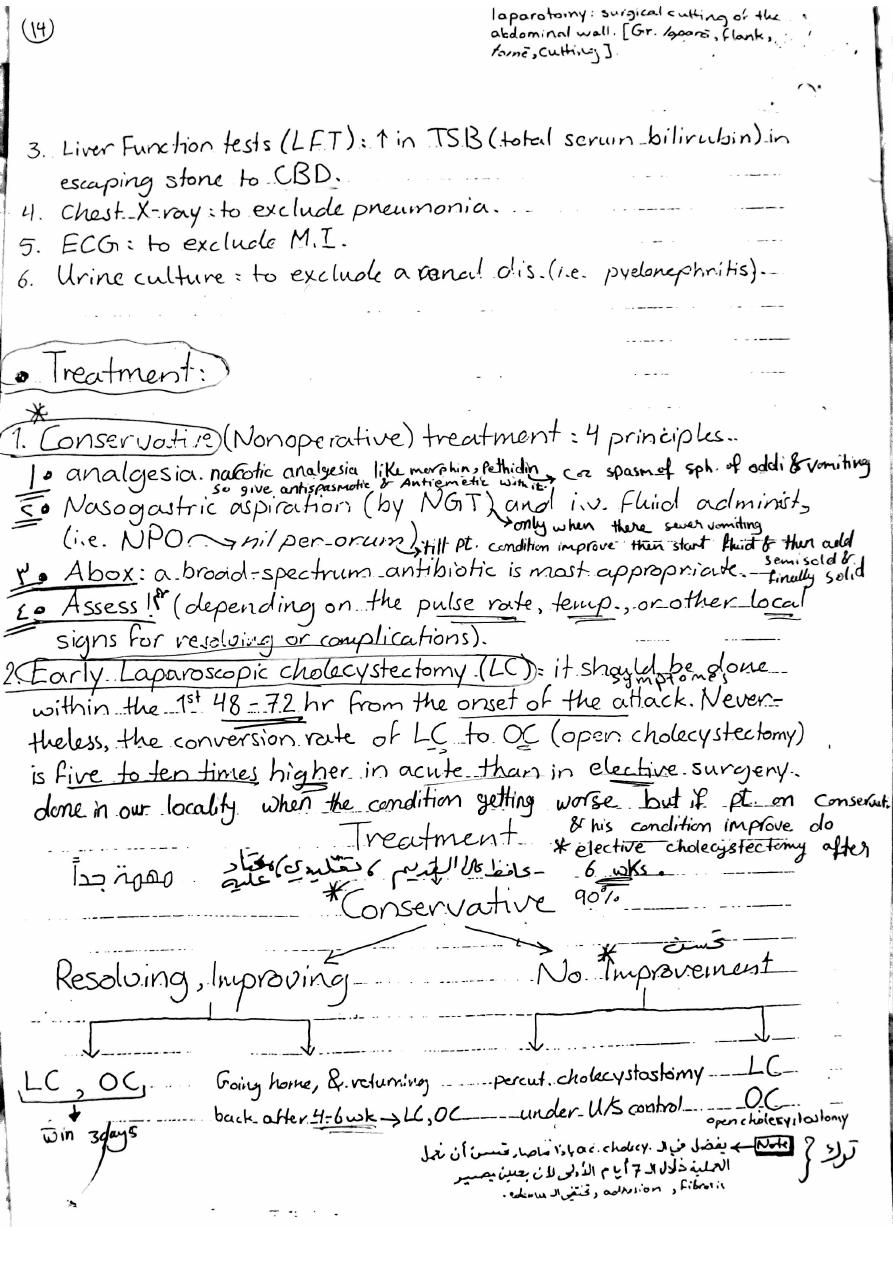 (14)
laparotomy: surgical cutting of the
abdominal wall. [Gr. lapara, flank,
tomē, cutting].
3. Liver Function tests (LFT): ↑ in TSB (total serum bilirubin) in
escaping stone to CBD.
4. Chest X-ray: to exclude pneumonia.
5. ECG: to exclude M.I.
6. Urine culture: to exclude a renal dis. (i.e. pyelonephritis).
• Treatment:
*
1. Conservative (Nonoperative) treatment: 4 principles..
١• analgesia. narcotic analgesia like morphin, Pethidin → Coz spasm of sph. of oddi & vomiting
so give antispasmotic & Antiemetic with it.
٢• Nasogastric aspiration (by NGT) and i.v. fluid administ,
→ only when there sever vomiting
(i.e. NPO → nil per-orum) → till pt. condition improve then start fluid & then add
semisold &
finally solid
٣• Abox: a broad-spectrum antibiotic is most appropriate.
٤• Assess!! (depending on the pulse rate, temp., or other local
signs for resolving or complications).
2. Early Laparoscopic cholecystectomy (LC): it should be done
symptomes
within the 1st 48-72 hr from the onset of the attack. Never-
theless, the conversion rate of LC to OC (open cholecystectomy)
is five to ten times higher in acute than in elective surgery.
done in our locality when the condition getting worse but if pt. on Conservat.
& his condition improve do
* elective cholecystectomy after
6 wks.
Treatment
مهمة جداً
حافظ على القديم، تقليدي، معتاد
عليه
*Conservative 90%
تحسن
Resolving, Improving No *Improvement
LC, OC Going home, & returning percut. cholecystostomy LC
back after 4-6 wk → LC, OC under U/S control OC
open cholecystostomy
win 3days
Note ← يفضل في الـ ac. cholecy.
العملية خلال الـ 7 أيام الأولى لأن بعدين يصير
fibrosis, adhesion